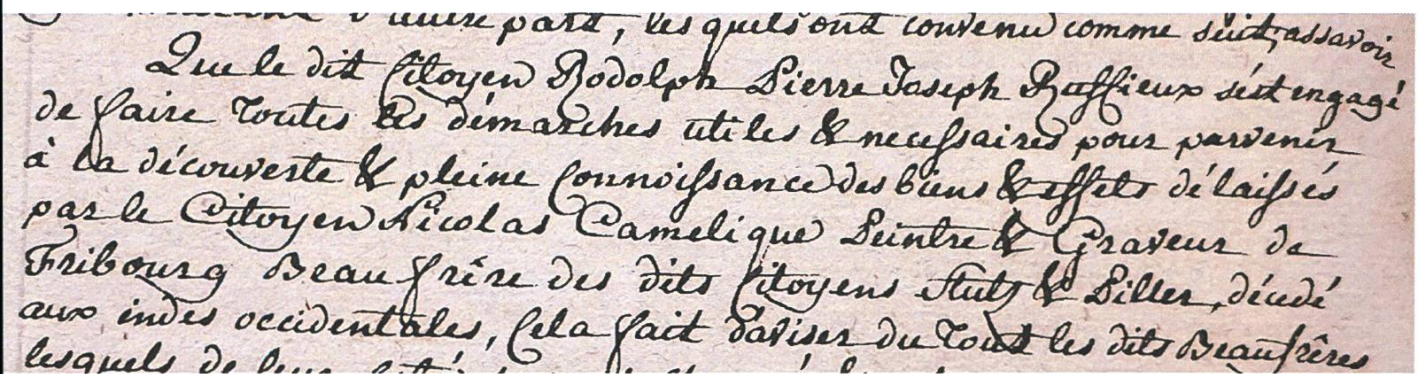 d'autre part, lesquels ont convenu comme suit, assavoir
Que le dit Citoyen Rodolph Pierre Joseph Ruffieux s'est engagé
de faire toutes les démarches utiles & necessaires pour parvenir
à la découverte & pleine Connoissance des biens & effets délaissés
par le Citoyen Nicolas Camelique Peintre & Graveur de
Fribourg Beaufrère des dits Citoyens Stutz & Piller, décédé
aux indes occidentales, Cela fait d'aviser du Tout les dits Beaufrêres
lesquels de leur